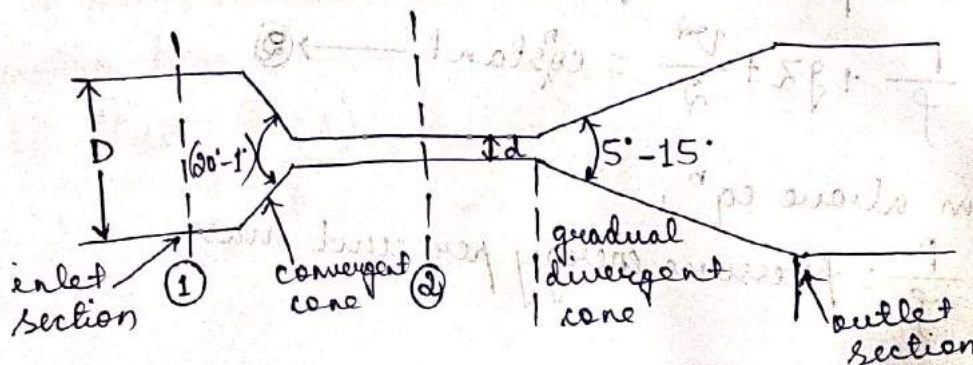 = costant → ②
D
(20°-1°)
d
5°-15°
inlet
section
①
convergent
cone
②
gradual
divergent
cone
outlet
section